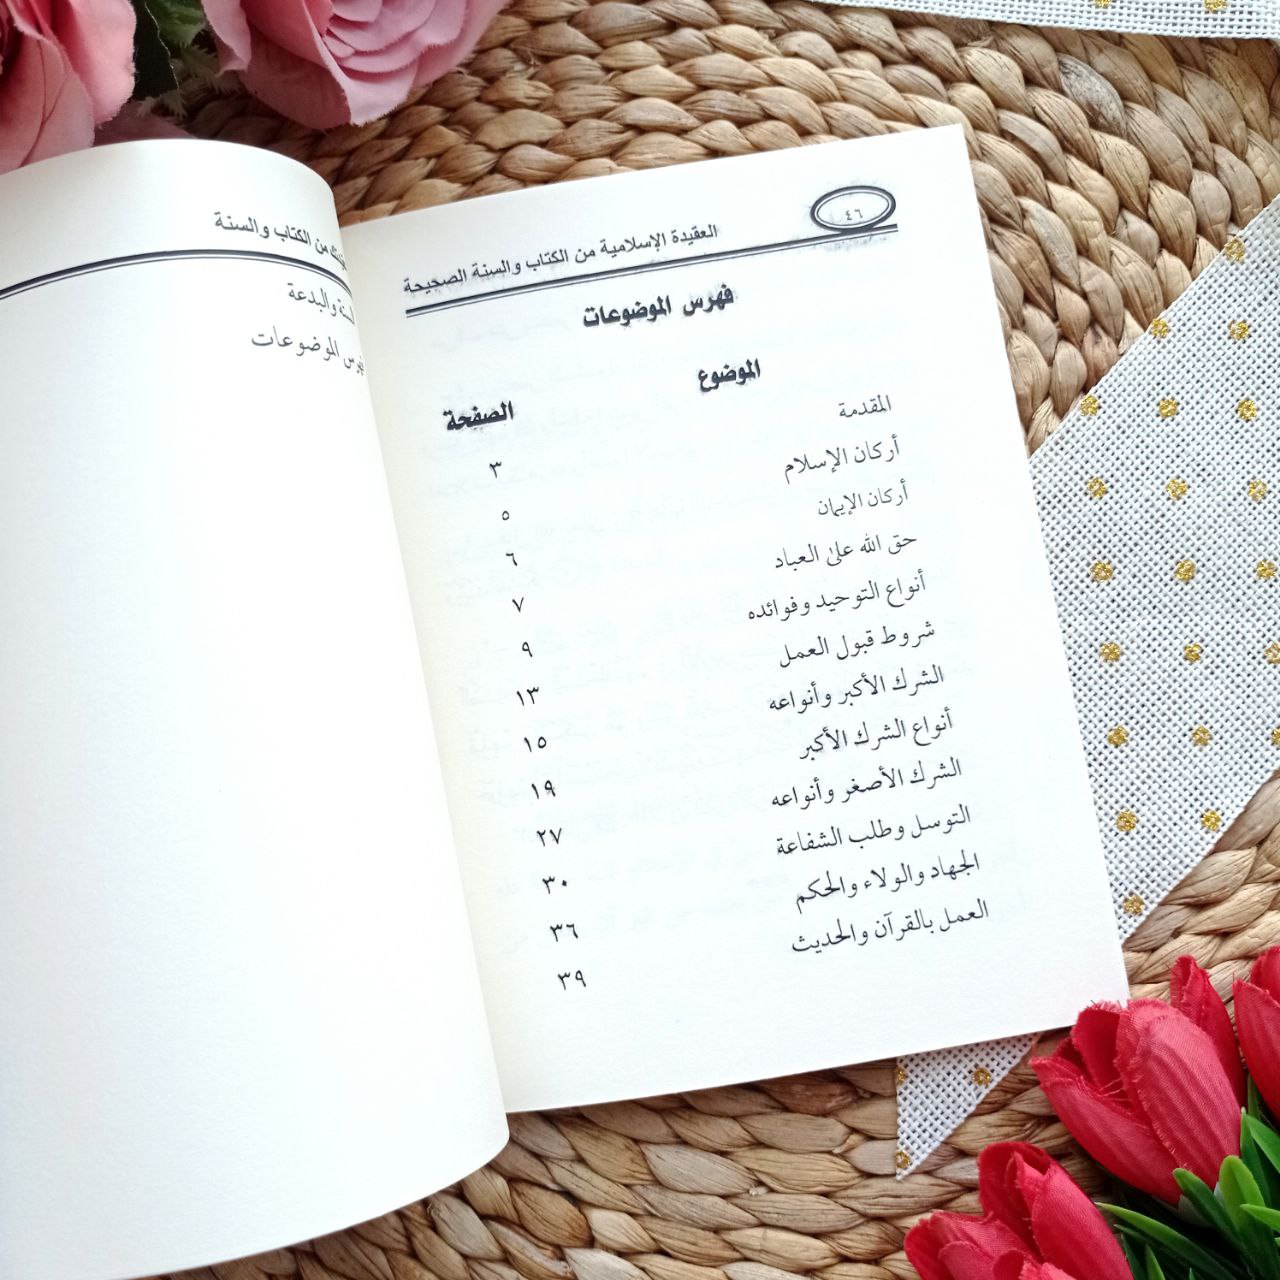 ٤٦
العقيدة الإسلامية من الكتاب والسنة الصحيحة
فهرس الموضوعات
الموضوع الصفحة
المقدمة ٣
أركان الإسلام ٥
أركان الإيمان ٦
حق الله على العباد ٧
أنواع التوحيد وفوائده ٩
شروط قبول العمل ١٣
الشرك الأكبر وأنواعه ١٥
أنواع الشرك الأكبر ١٩
الشرك الأصغر وأنواعه ٢٧
التوسل وطلب الشفاعة ٣٠
الجهاد والولاء والحكم ٣٦
العمل بالقرآن والحديث ٣٩
من الكتاب والسنة
والبدعة
الموضوعات